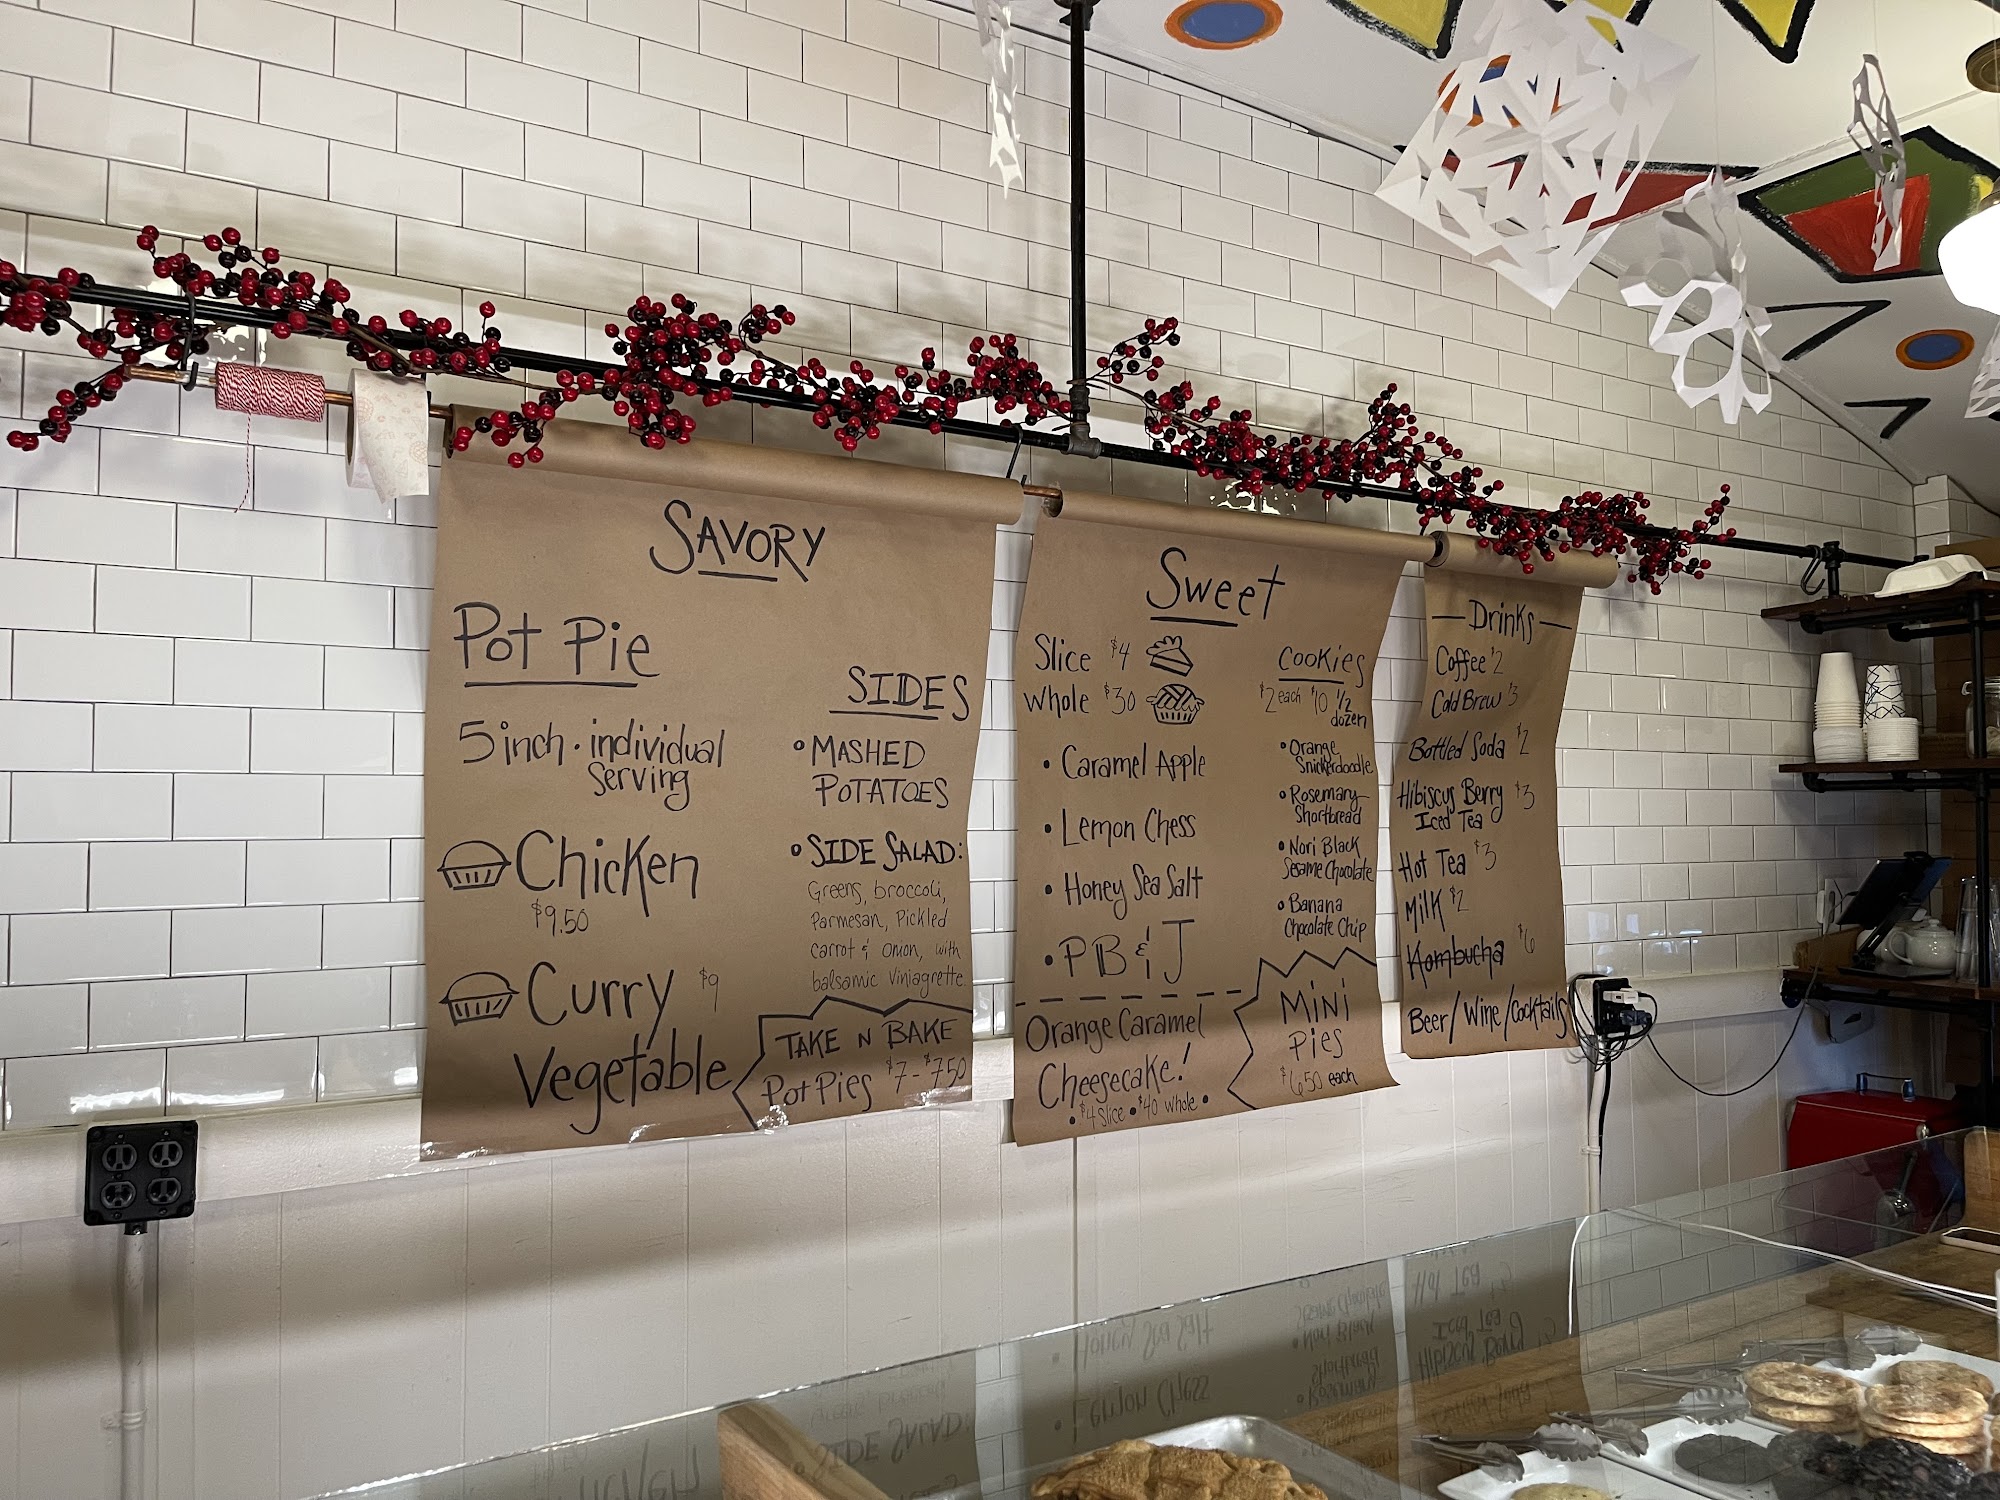 SAVORY
Pot Pie
5 inch · individual
serving
Chicken
$9.50
Curry $9
Vegetable
SIDES
• MASHED
POTATOES
• SIDE SALAD:
Greens, broccoli,
Parmesan, Pickled
carrot & onion, with
balsamic Viniagrette
TAKE N BAKE
Pot Pies $7-$7.50
Sweet
Slice $4
Whole $30
• Caramel Apple
• Lemon Chess
• Honey Sea Salt
• PB & J
Orange Caramel
Cheesecake!
• $4 Slice • $40 whole •
COOKIES
$2 each $10 1/2
dozen
• Orange
Snickerdoodle
• Rosemary
Shortbread
• Nori Black
Sesame Chocolate
• Banana
Chocolate Chip
MINI
PIES
$6.50 each
— Drinks —
Coffee $2
Cold Brew $3
Bottled Soda $2
Hibiscus Berry $3
Iced Tea
Hot Tea $3
Milk $2
Kombucha $6
Beer/Wine/Cocktails